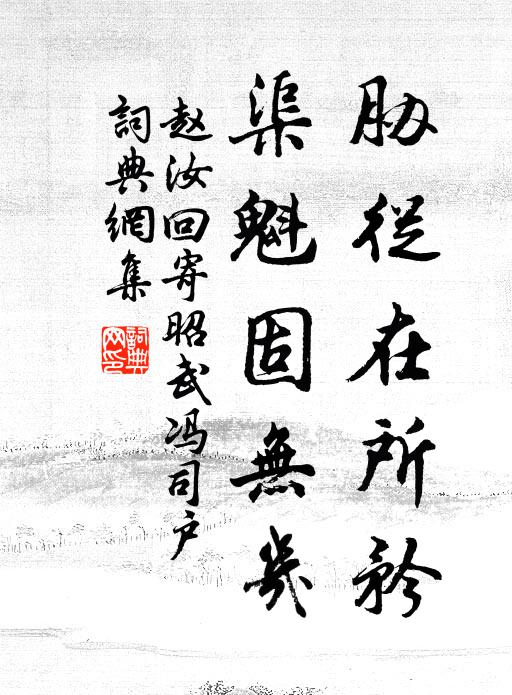 胁从在所矜
渠魁固無幾
赵汝回寄昭武冯司户
詞典網集
詞典网印